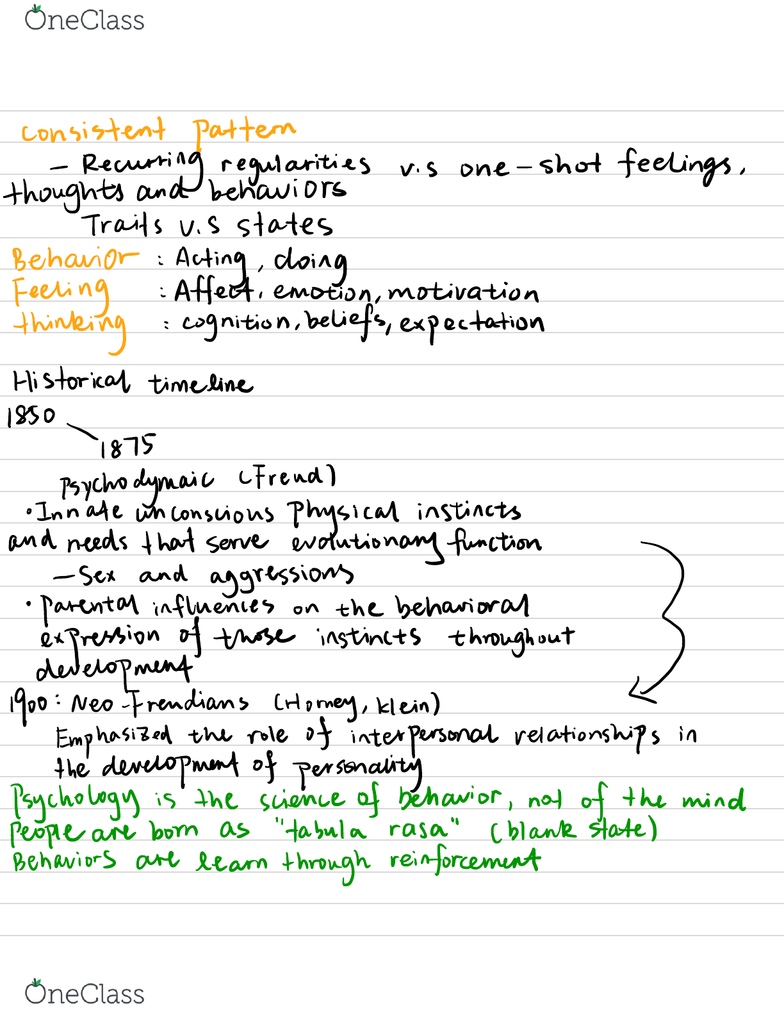 OneClass
Consistent Pattern
– Recurring regularities v.s one-shot feelings,
thoughts and behaviors
Traits v.s states
Behavior : Acting, doing
Feeling : Affect, emotion, motivation
thinking : cognition, beliefs, expectation
Historical timeline
1850
1875
Psychodymaic (Freud)
• Innate unconscious Physical instincts
and needs that serve evolutionary function
– Sex and aggressions
• Parental influences on the behavioral
expression of those instincts throughout
development
1900: Neo-Freudians (Horney, klein)
Emphasized the role of interpersonal relationships in
the development of personality
Psychology is the science of behavior, not of the mind
People are born as "tabula rasa" (blank state)
Behaviors are learn through reinforcement
OneClass